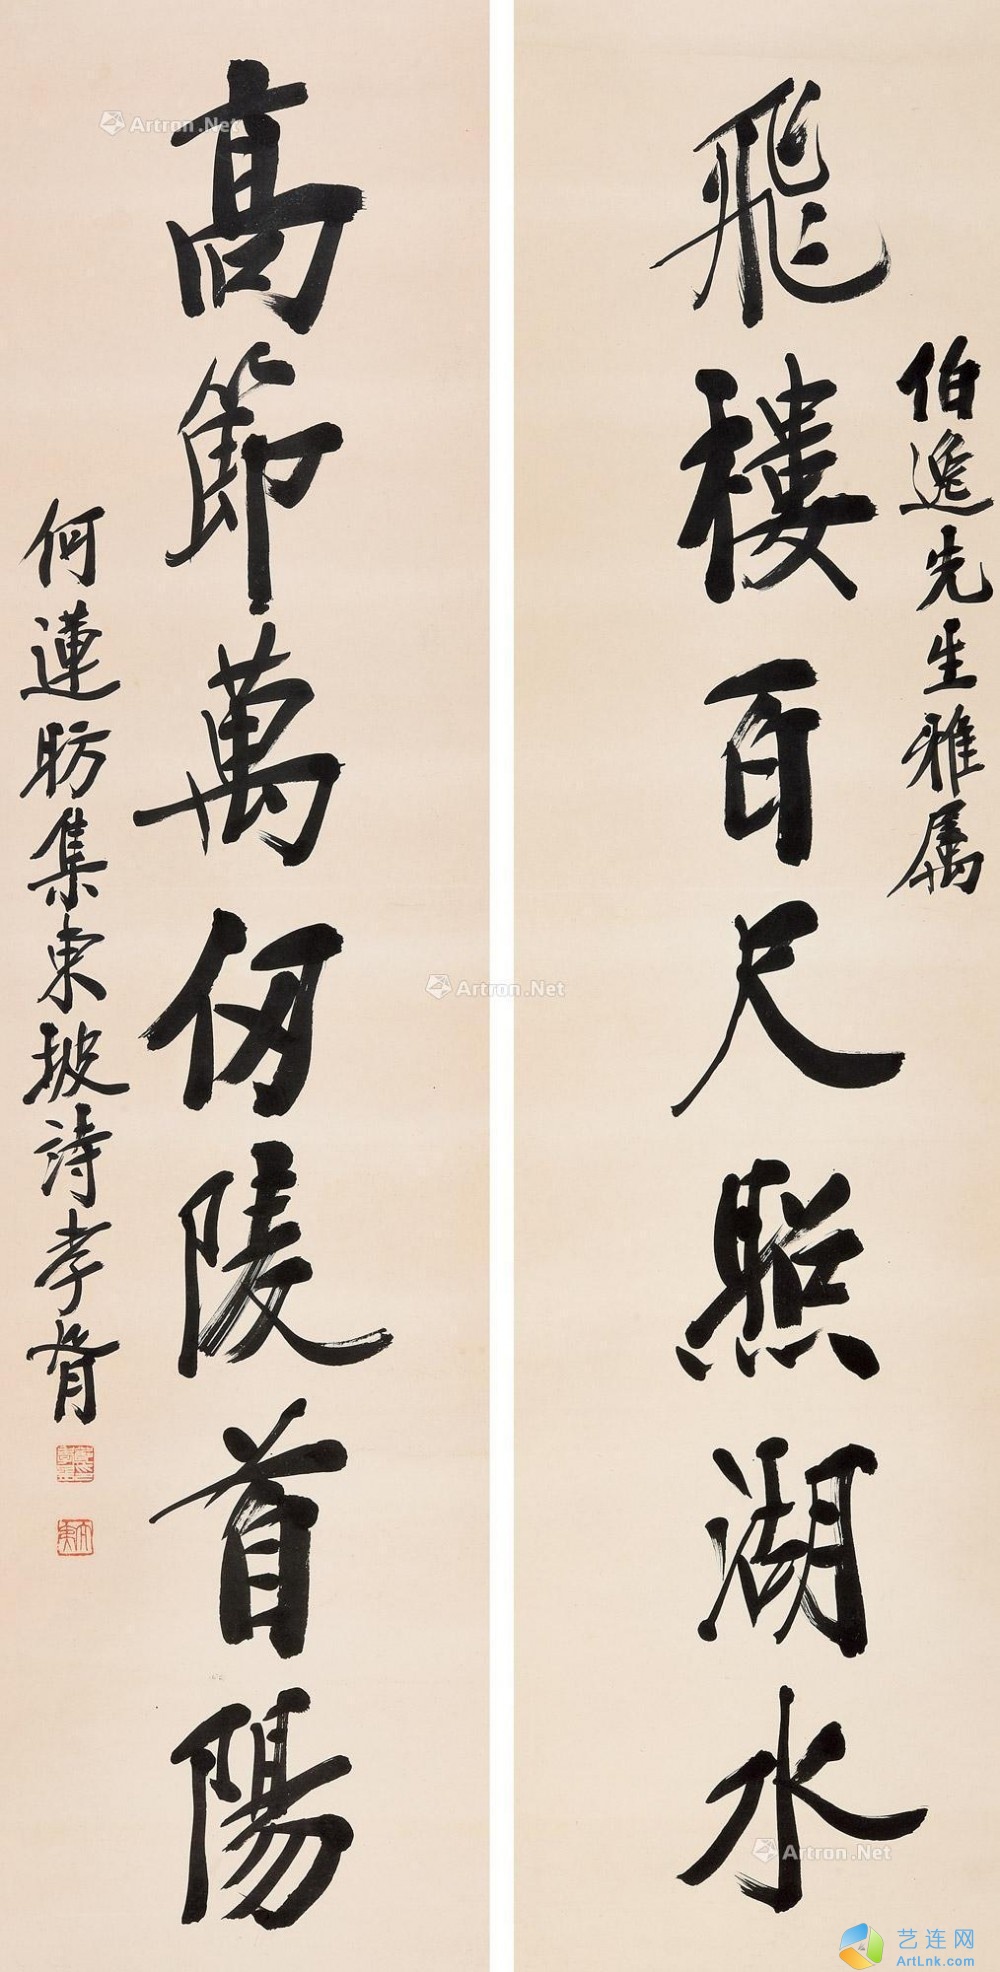 伯逸先生雅属
飛樓百尺照湖水
高節萬仞陵首陽
何蓮昉集東坡詩孝胥
Artron.Net
Artron.Net
Artron.Net
艺连网
ArtLnk.com